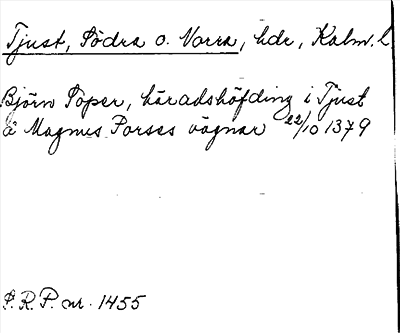 Tjust, Södra o. Norra, hdr, Kalm. l
Björn Soper, häradshöfding i Tjust
å Magnus Porses vägnar 22/10 1379
S.R.P. nr. 1455